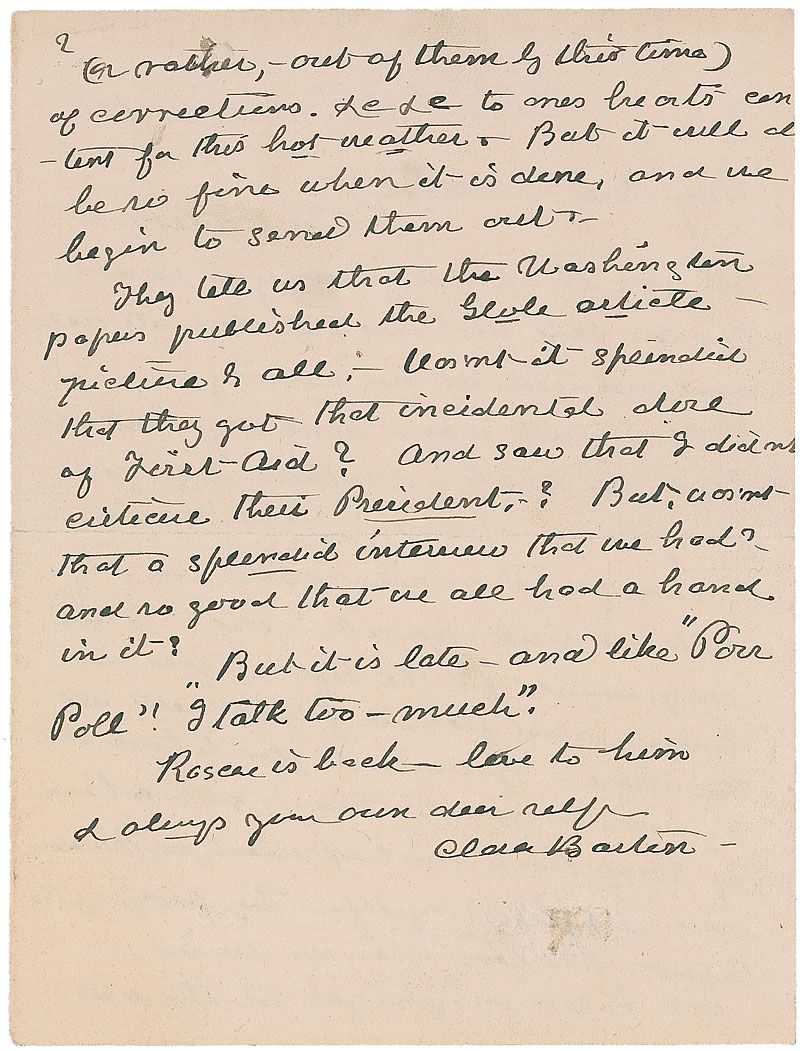 2
(or rather, – out of them by this time)
of corrections. &c &c to ones hearts con
-tent for this hot weather. – But it will al
be so fine when it is done, and we
begin to send them out. –
They tell us that the Washington
papers published the Globe article –
picture & all. – Wasnt it splendid
that they got that incidental dose
of First-Aid? And saw that I didnt
criticise their President. – ? But, wasnt
that a splendid interview that we had?
and so good that we all had a hand
in it?
But it is late – and like "Poor
Poll"! "I talk too – much".
Roscoe is back – love to him
& always your own dear self
Clara Barton –